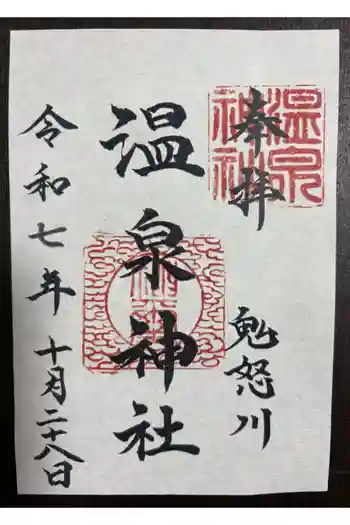 奉拝
鬼怒川
温泉神社
令和七年
十月二十八日
温泉
神社